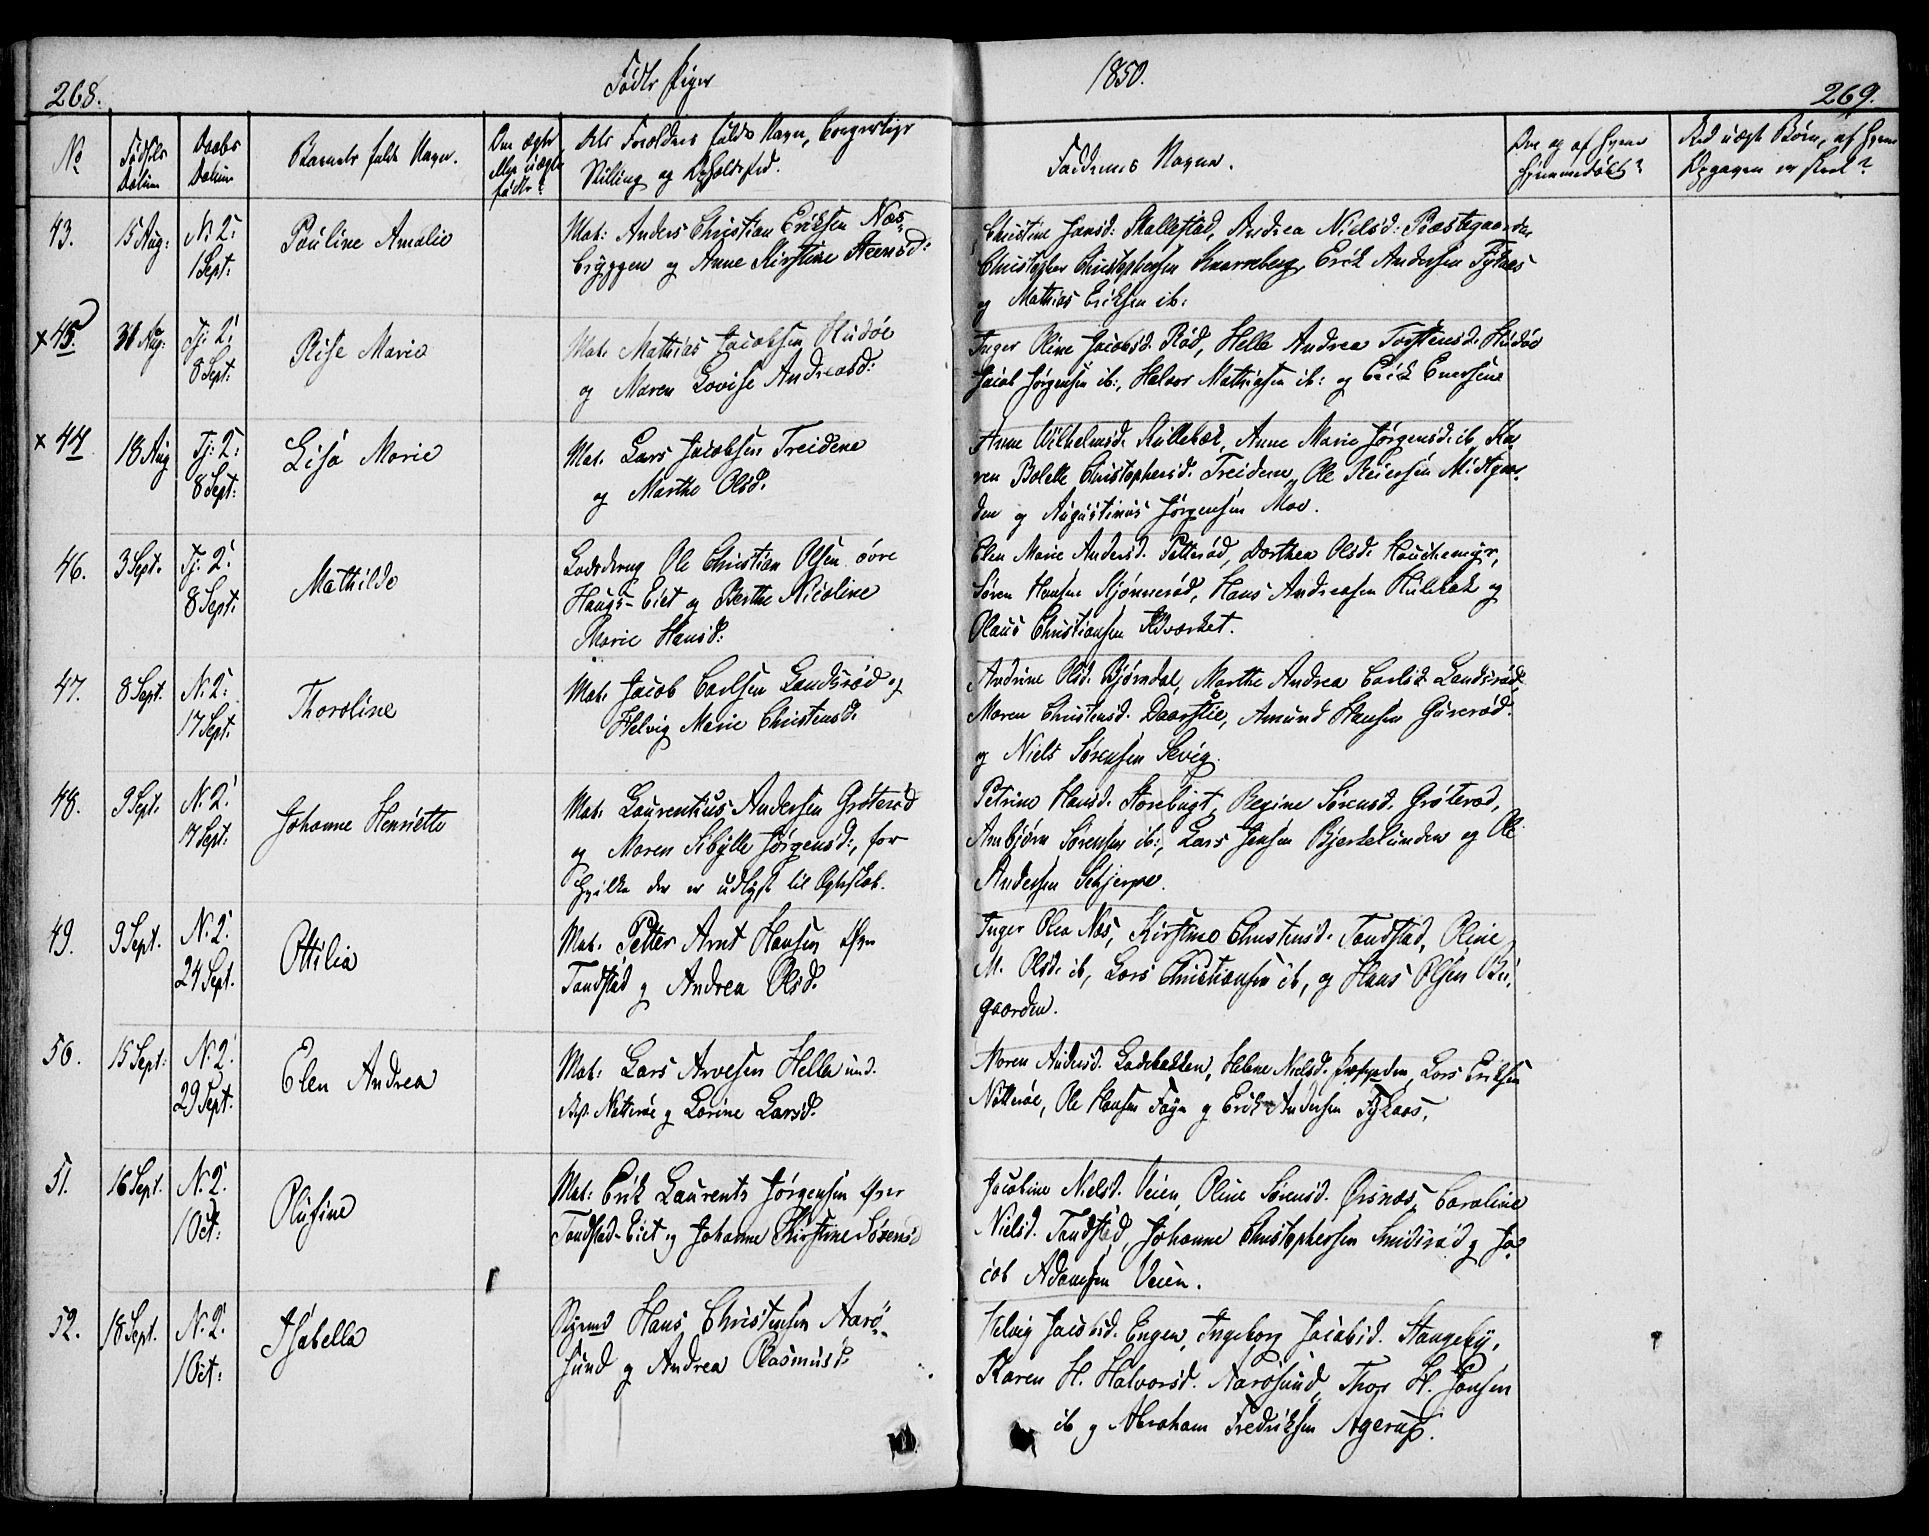 268.
Fødte Piger
1850.
269.
No
Fødsels Datum
Daabs Datum
Barnets fulde Navn.
Om ægte eller uægte født?
Forældrenes fulde Navn, borgerlige
Stilling og Opholdssted.
Faddernes Navne.
Om og af hvem hjemmedøbt?
Ved uægte Børn, af hvem
Opgaven er skeet?
43.
15 Aug:
N: 2:
1 Sept:
Pauline Amalie
Mat: Anders Christian Eriksen Nes-
bryggen og Anne Kirstine Steensd:
Christine Jansd: Skallestad, Andrea Nielsd:
Christopher Christophersen Knarreberg, Erik Andersen
og Mathias Eriksen ib:
x 45.
31 Aug:
Tj: 2:
8 Sept:
Rise Marie
Mat. Mathias Jacobsen Hudøe
og Maren Lovise Andreasd:
Inger Oline Jacobsd. Rød, Helle Andrea Torstensd. Hudøe
Jacob Jørgensen ib:, Halvor Mathiasen ib: og Erik
x 44
18 Aug
Tj: 2:
8 Sept:
Lisa Marie
Mat. Lars Jacobsen Treidene
og Marthe Olsd.
Anne Wilhelmsd. Kullebæk, Anne Marie Jørgensd. ib, Ka-
ren Bolelle Christophersd. Treidene, Ole Reiersen Midtgaar-
den og Augustinus Jørgensen Moe.
46.
3 Sept.
Tj: 2:
8 Sept:
Mathilde
Ole Christian Olsen øvre
Haugs-Eiet og Berthe Nicoline
Marie Hansd:
Elen Marie Andersd. Petterød, Dorthea Olsd.
Søren Hansen Skjønnerød, Hans Andreasen Hulebak og
Olaus Christiansen
47.
8 Sept.
N: 2:
17 Sept:
Thoroline
Mat. Jacob Carlsen Landsrød og
Helvig Marie Christensd.
Andrine Olsd. Bjørndal, Marthe Andrea Carlsd. Landsrød,
Maren Christensd. Amund Hansen
og Niels Sørensen Sevig.
48.
9 Sept.
N: 2:
17 Sept:
Johanne Henriette
Mat: Laurentius Andersen Grøterød
og Maren Sibylle Jørgensd:, for
hvilke der er udlyst til Ægteskab.
Petrine Hansd. Storebugt, Regine Sørensd. Grøterød,
Ambjørn Sørensen ib:, Lars Jensen Bjerkelunden og Ole
Andersen Schjerpe.
49.
9 Sept.
N: 2:
24 Sept.
Ottilia
Mat. Petter Arnt Hansen Øvre
Tandstad og Andrea Olsd.
Inger Olea Næs, Kirstine Christensd. Tandstad, Oline
M. Olsd. ib, Lars Christiansen ib, og Hans Olsen
gaarden.
50.
15 Sept:
N: 2:
29 Sept:
Elen Andrea
Mat: Lars Arvesen Hella
Nøtterøe og Lorine Larsd.
Maren Andersd. Helene Nielsd. Lars Eriksen
Nøtterøe, Ole Hansen Føyn og Erik Andersen
51.
16 Sept.
N: 2.
1 Oct:
Olufine
Mat: Erik Laurents Jørgensen Øvre
Tandstad-Eiet og Johanne Kirstine Sørensd
Jacobine Nielsd. Veien, Oline Sørensd. Ørsnæs, Caroline
Nielsd. Tandstad, Johanne Christophersen Smidsrød og Ja-
cob Adamsen Veien.
52.
18 Sept.
N: 2.
1 Oct:
Isabella
Hans Christensen Aarø-
sund og Andrea Rasmusd.
Helvig Jacobsd. Engen, Ingeborg Jacobsd. Stangeby,
Karen H. Halvorsd. Aarøsund, Thor H. Jansen
ib og Abraham Fredriksen Agerup.